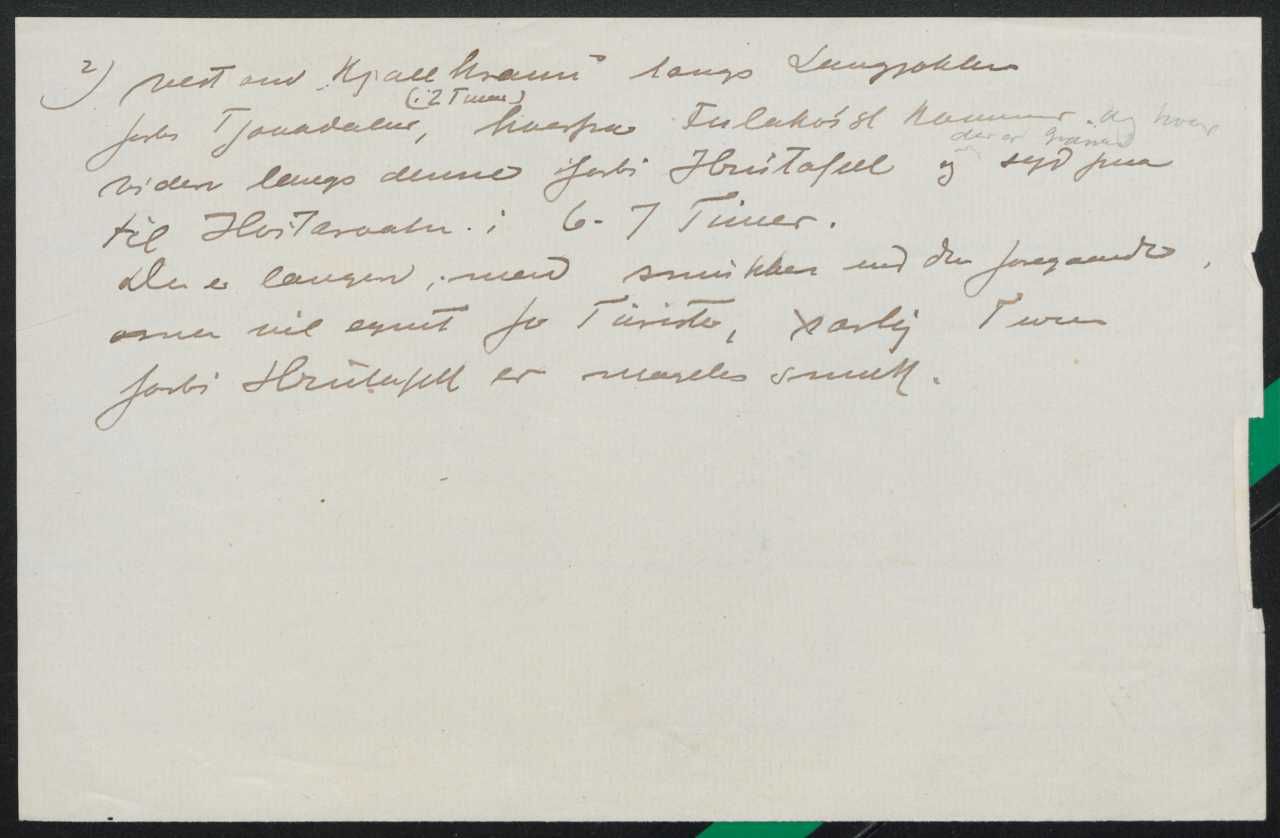 2) vest om "Kjallhraun" langs Langjøklen
(i 2 Timer)
forbi Tjarnadalur, hvorfra Fulakvisl kommer. og hvor
der er Græs
videre langs denne forbi Hrútafell og syd paa
til Hvitarvatn. i 6-7 Timer.
Den er længere, men smukkere end den foregaaende,
men vel egnet for Turister, særlig Turen
forbi Hrútafell er mageløs smuk.